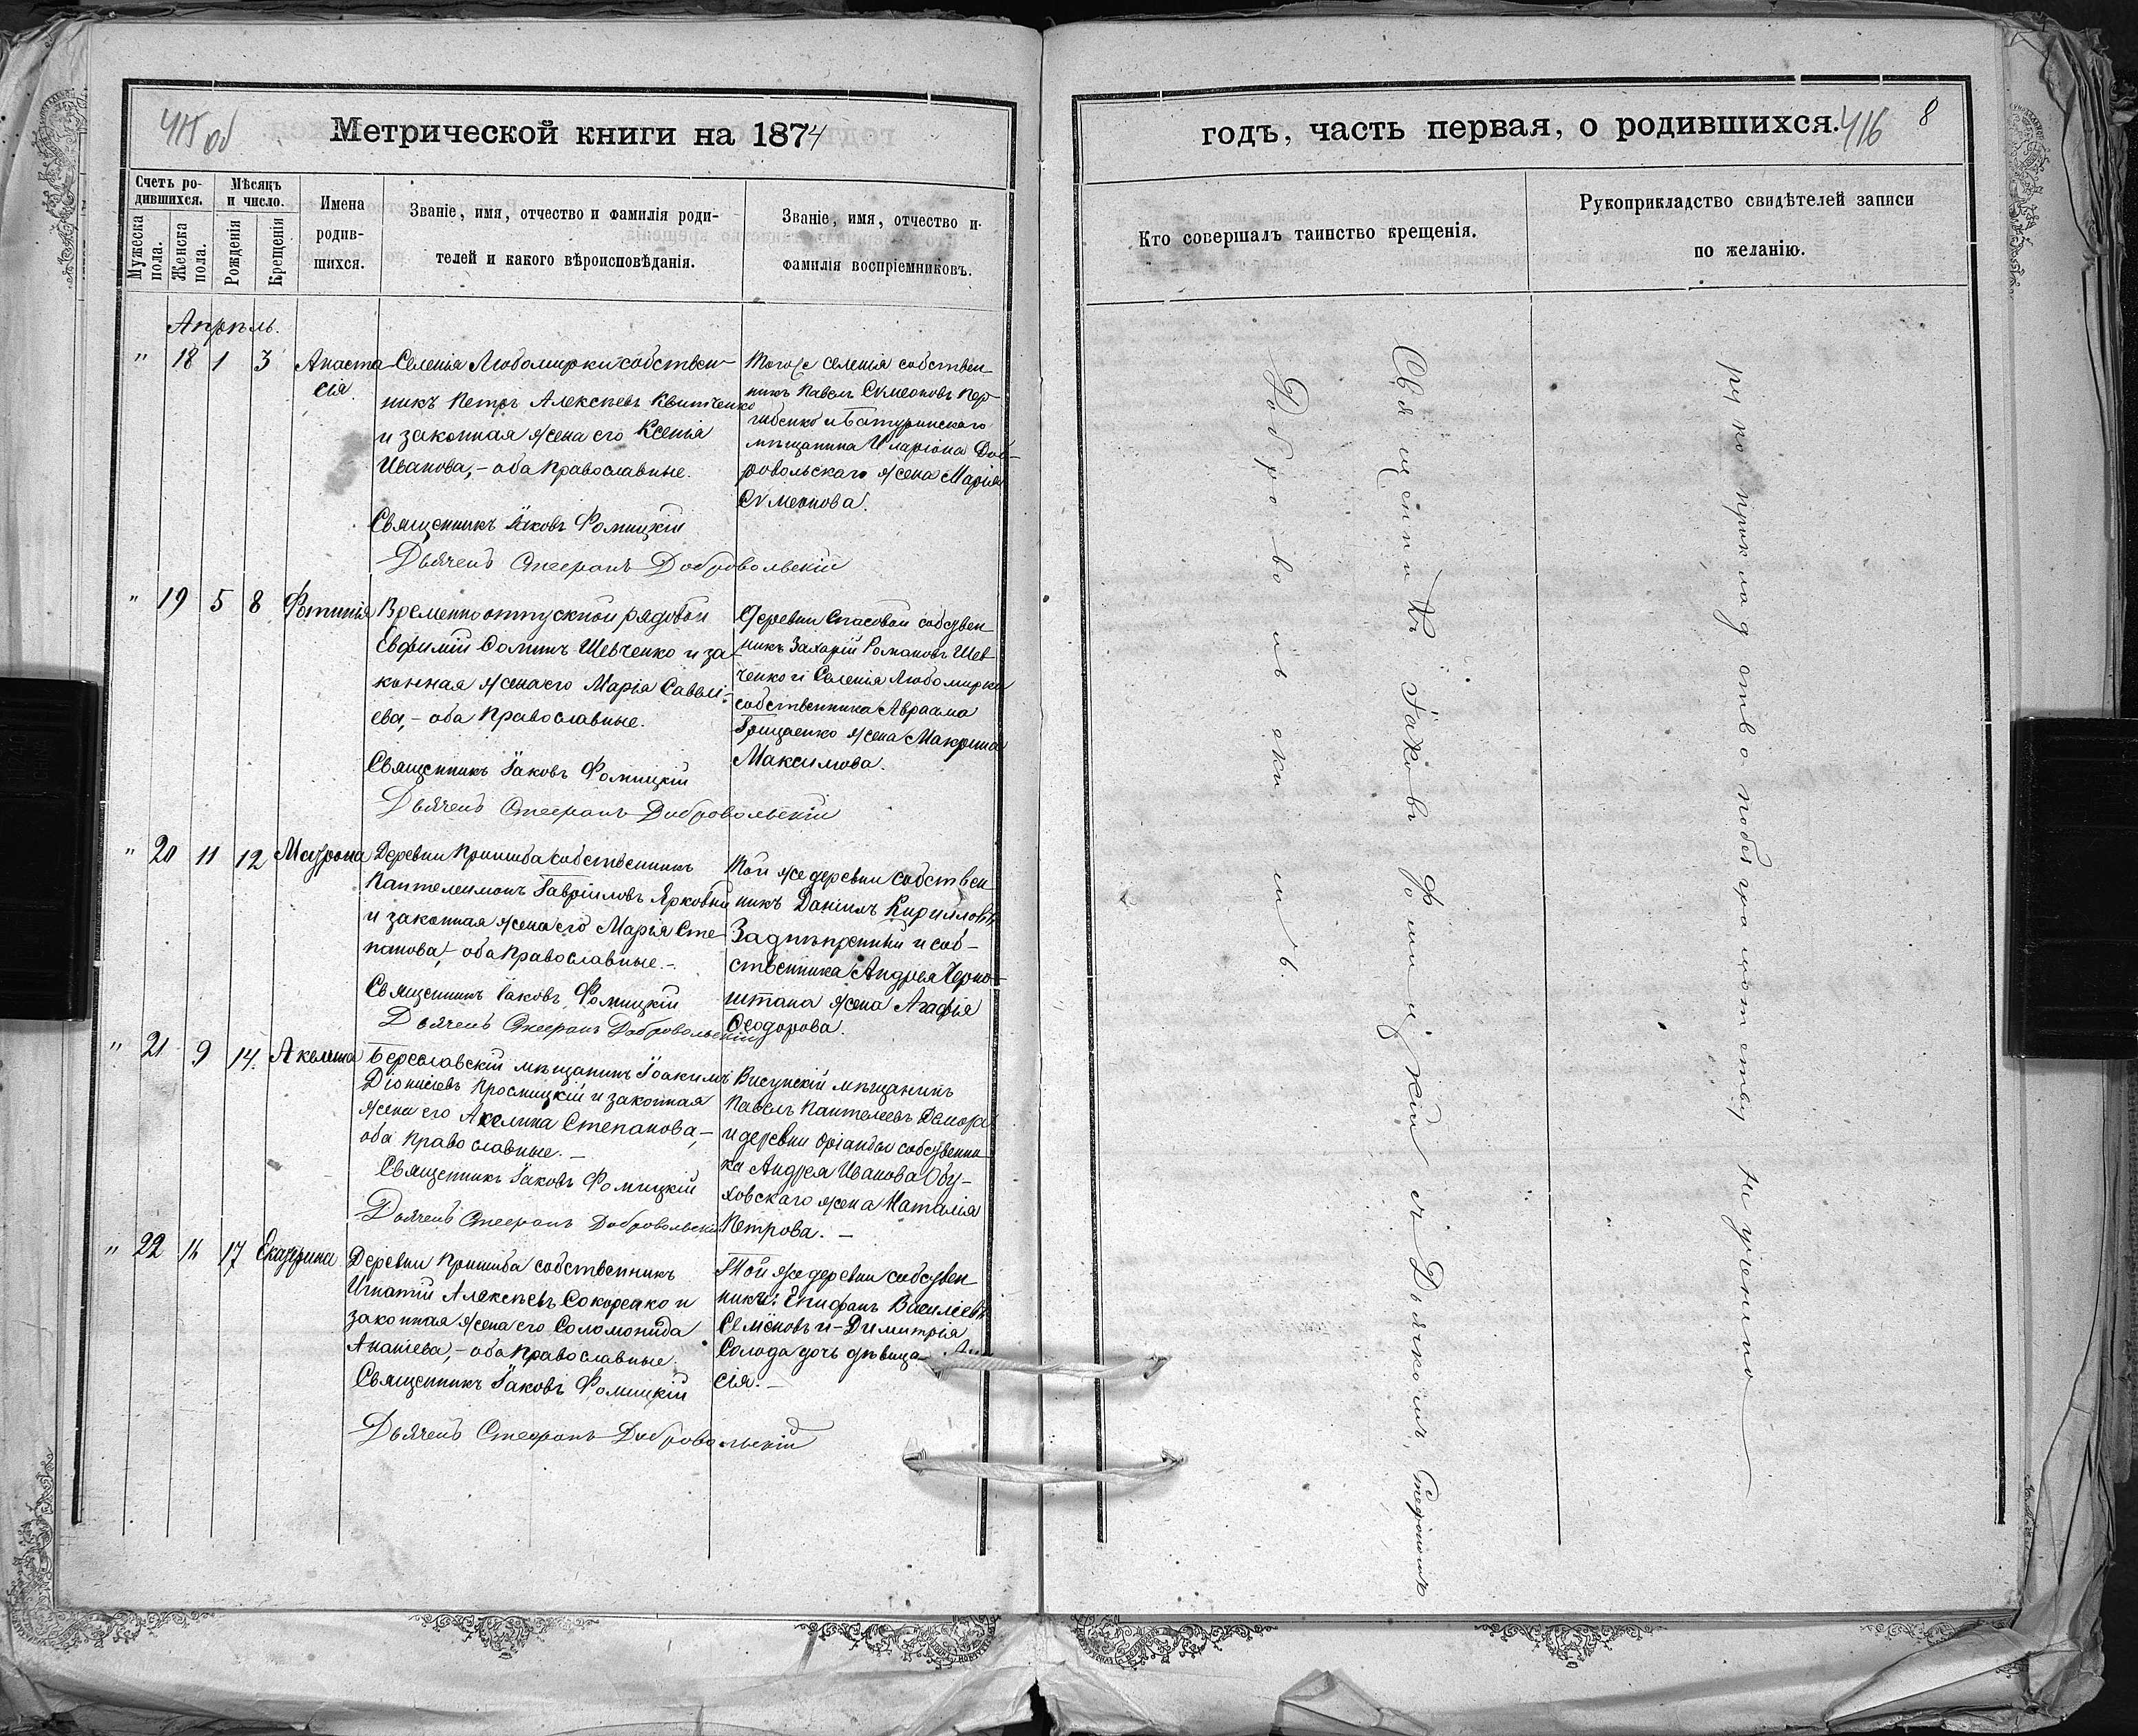 415 об
Метрической книги на 1874
Счетъ ро-
дившихся.
Мѣсяцъ
и число.
Имена
родив-
шихся.
Званіе, имя, отчество и фамилія роди-
телей и какого вѣроисповѣданія.
Званіе, имя, отчество и
фамилія воспріемниковъ.
Мужеска
пола.
Женска
пола.
Рожденія
Крещенія
Апрѣль.
" 18 1 3 Анаста
сія.
Селенія Любомирки собствен-
никъ Петръ Алексѣевъ Квитченко
и законная жена его Ксенія
Иванова, – оба Православные.
Священникъ Іаковъ Фомицкій
Дьячекъ Стефанъ Добровольскій
Тогоже селенія собствен
никъ Павелъ Симеоновъ
и Батуринскаго
мѣщанина Иларіона Доб-
ровольскаго жена Марія
Симеонова.
" 19 5 8 Фотинія
Временноотпускной рядовой
Евфимій Фоминъ Шевченко и за
конная жена его Марія Савелі-
ева, – оба Православные.
Священникъ Іаковъ Фомицкій
Дьячекъ Стефанъ Добровольскій
Деревни Спасовой собствен
никъ Захарій Романовъ Шев
ченко и Селенія Любомирки
собственника Авраама
Грищенко жена Макрина
Максимова.
" 20 11 12 Матрона
Деревни Пришиба собственникъ
Пантелеимонъ Гавріиловъ Ярковый
и законная жена его Марія Сте
панова, – оба Православные. –
Священникъ Іаковъ Фомицкій
Дьячекъ Стефанъ Добровольскій
Той же деревни собствен
никъ Даніилъ Кирилловъ
Заднѣпренный и соб-
ственника Андрея Черно-
штана жена Агафія
Феодорова.
" 21 9 14. Акелина
Береславскій мѣщанинъ Іоакимъ
Діонисіевъ и законная
жена его Акелина Степанова, –
оба православные. –
Священникъ Іаковъ Фомицкій
Дьячекъ Стефанъ Добровольскій
Висунскій мѣщанинъ
Павелъ Пантелеевъ
и деревни собственни
ка Андрея Иванова Обу-
ховскаго жена Наталія
Петрова. –
" 22 16 17 Екатерина
Деревни Пришиба собственникъ
Игнатій Алексѣевъ Сокоренко и
законная жена его Соломонида
Ананіева, – оба Православные.
Священникъ Іаковъ Фомицкій
Дьячекъ Стефанъ Добровольскій
Той же деревни собствен
никъ Епифанъ Василіевъ
Семеновъ и – Димитрія
Солода дочь дѣвица
сія. –
годъ, часть первая, о родившихся.
416
8
Кто совершалъ таинство крещенія.
Рукоприкладство свидѣтелей записи
по желанію.
Священникъ Іаковъ Фомицкій съ Дьячкомъ Стефаномъ
Добровольскимъ.
рукоприкладство по безграмотству не учинено